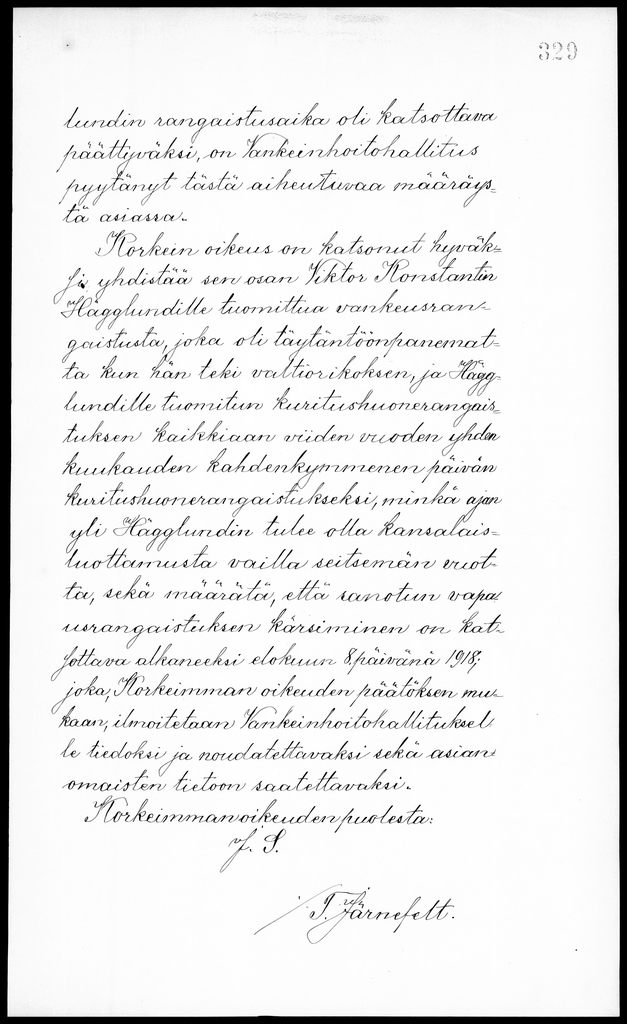 329
lundin rangaistusaika oli katsottava
päättyväksi, on Vankeinhoitohallitus
pyytänyt tästä aiheutuvaa määräys=
tä asiassa.
Korkein oikeus on katsonut hyväk=
si yhdistää sen osan Viktor Konstantin
Hägglundille tuomittua vankeusran=
gaistusta, joka oli täytäntöönpanemat=
ta kun hän teki valtiorikoksen, ja Hägg=
lundille tuomitun kuritushuonerangais=
tuksen kaikkiaan viiden vuoden yhden
kuukauden kahdenkymmenen päivän
kuritushuonerangaistukseksi, minkä ajan
yli Hägglundin tulee olla kansalais=
luottamusta vailla seitsemän vuot=
ta, sekä määrätä, että sanotun vapa
usrangaistuksen kärsiminen on kat=
sottava alkaneeksi elokuun 8 päivänä 1918;
joka, Korkeimman oikeuden päätöksen mu=
kaan, ilmoitetaan Vankeinhoitohallituksel=
le tiedoksi ja noudatettavaksi sekä asian=
omaisten tietoon saatettavaksi.
Korkeimman oikeuden puolesta:
J. S.
T. Järnefelt.